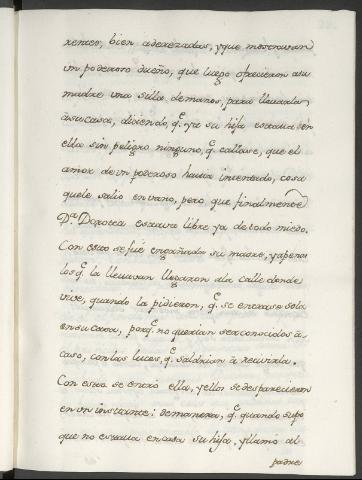 rentes, bien aderezadas, y que mostravan
un poderoso dueño, que luego ofrecieron a su
madre una silla de manos, para lleuarla
à su casa, diciendo, q.e ya su hija estaua en
ella sin peligro ninguno, q.e callase, que el
amor de un poderoso hauia intentado, cosa
que le salio en vano, pero que finalmente
D.a Dorotea estava libre ya de todo miedo.
Con esto se fué engañada su madre, y apenas
los q.e la lleuavan llegaron a la calle donde
vive, quando la pidieron, q.e se entrase sola
en su casa, porq.e no querian ser conocidos à
caso, con las luces, q.e saldrian à reciuirla.
Con esto se entró ella, y ellos se desparecieron
en un instante: de manera, q.e quando supo
que no estaua en casa su hija, y llamo al
padre